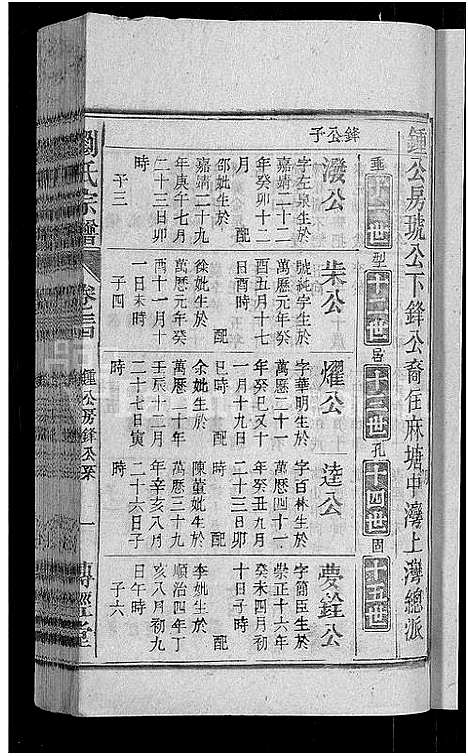 鍾公房琥公下鋒公裔住麻塘中灣上灣總派
垂 十一世 型 十二世 昌 十三世 孔 十四世 固 十五世
鋒公子
潑公
字左泉生於
嘉靖二十二
年癸卯十二
月 配
邵妣生於
嘉靖二十九
年庚午七月
二十三日卯
時
子三
公
號純宇生於
萬曆元年癸
酉五月十七
日酉時 配
徐妣生於
萬曆元年癸
酉十一月十
一日未時
子四
燿公
字華明生於
萬曆二十一
年癸巳又十
一月十九日
巳時 配
余妣生於
萬曆二十年
壬辰十二月
二十七日寅
時
逵公
字百林生於
萬曆四十一
年癸丑九月
二十三日卯
時 配
陳董妣生於
萬曆三十九
年辛亥八月
二十六日子
時
夢銓公
字簡臣生於
崇正十六年
癸未四月初
十日子時
配
李妣生於
順治四年丁
亥八月初九
日午時
子六
劉氏宗譜
卷三
鍾公房鋒公系
一